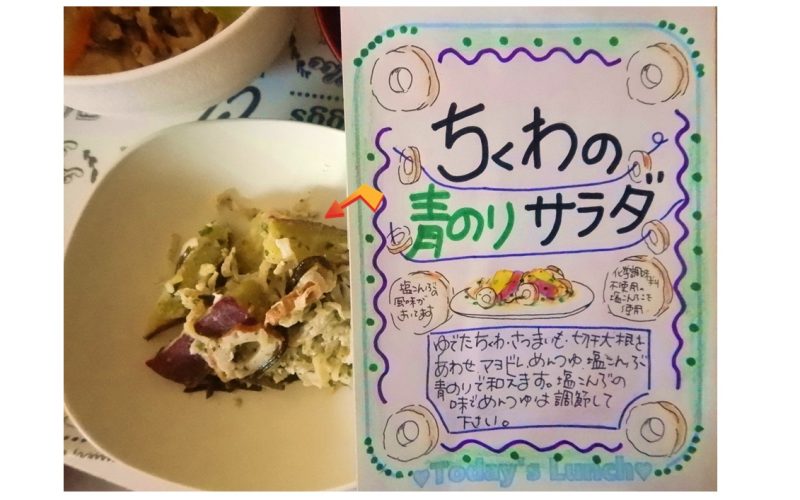 ちくわの
青のりサラダ
塩こんぶの
風味が
きいてます
化学調味料
不使用の
塩こんぶを
使用
ゆでたちくわ、さつまいも、切干大根を
あわせ、マヨドレ、めんつゆ、塩こんぶ
青のりで和えます。塩こんぶの
味でめんつゆは調節して
下さい。
♥Today's Lunch♥